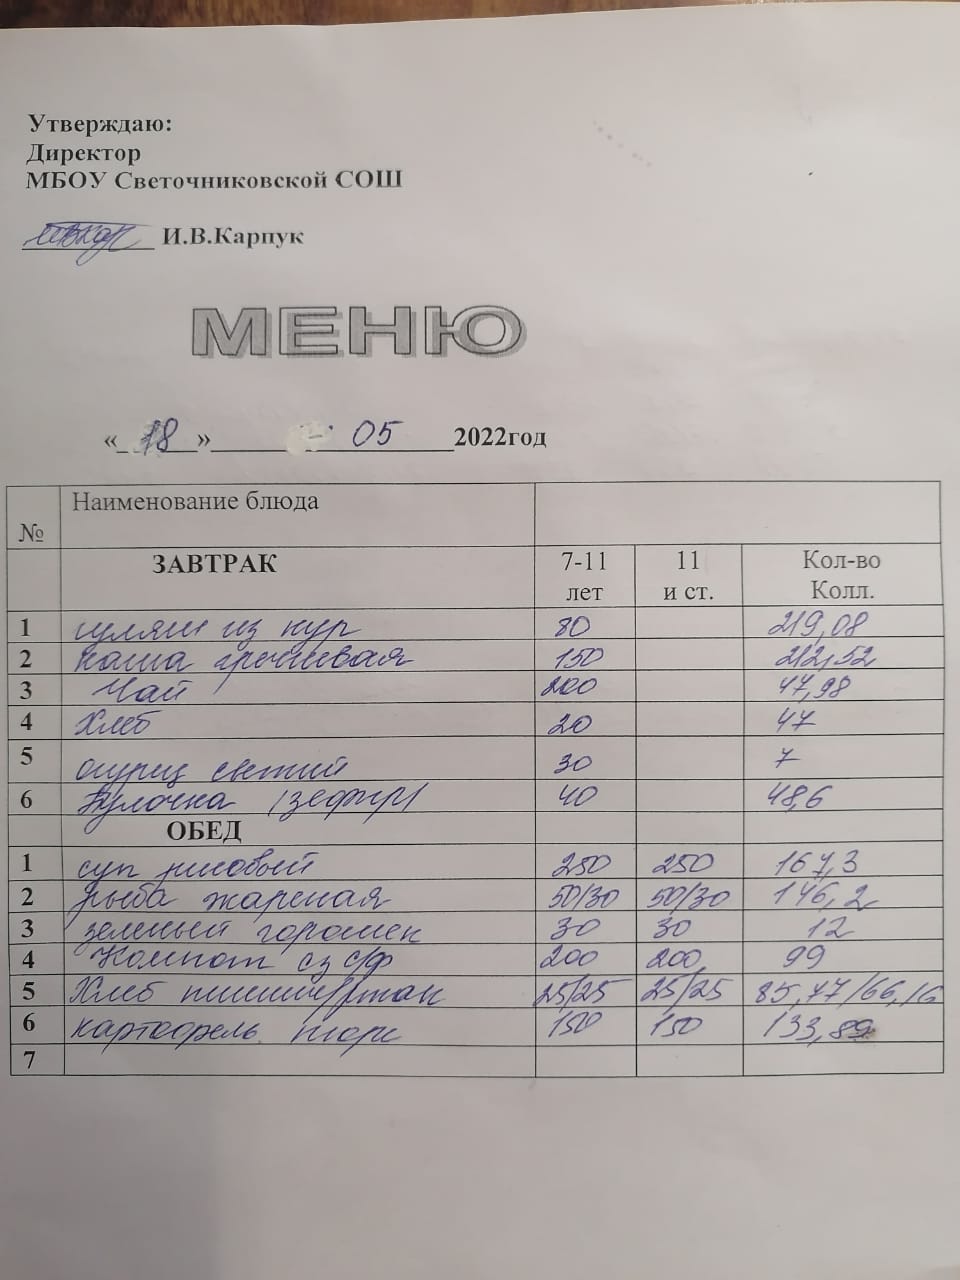 Утверждаю:
Директор
МБОУ Светочниковской СОШ
И.В.Карпук
МЕНЮ
«_18_»_____05____2022год
№ Наименование блюда
ЗАВТРАК 7-11 лет 11 и ст. Кол-во Колл.
1 гуляш из кур 80 219,08
2 каша гречневая 150 212,52
3 Чай 200 47,98
4 Хлеб 20 47
5 огурец свежий 30 7
6 Булочка (зефир) 40 48,6
ОБЕД
1 суп рисовый 250 250 167,3
2 рыба жареная 50/30 50/30 146,2
3 зеленый горошек 30 30 12
4 Компот сз с/ф 200 200 99
5 Хлеб пшенич/ржан 25/25 25/25 85,77/66,16
6 картофель пюре 150 150 133,89
7